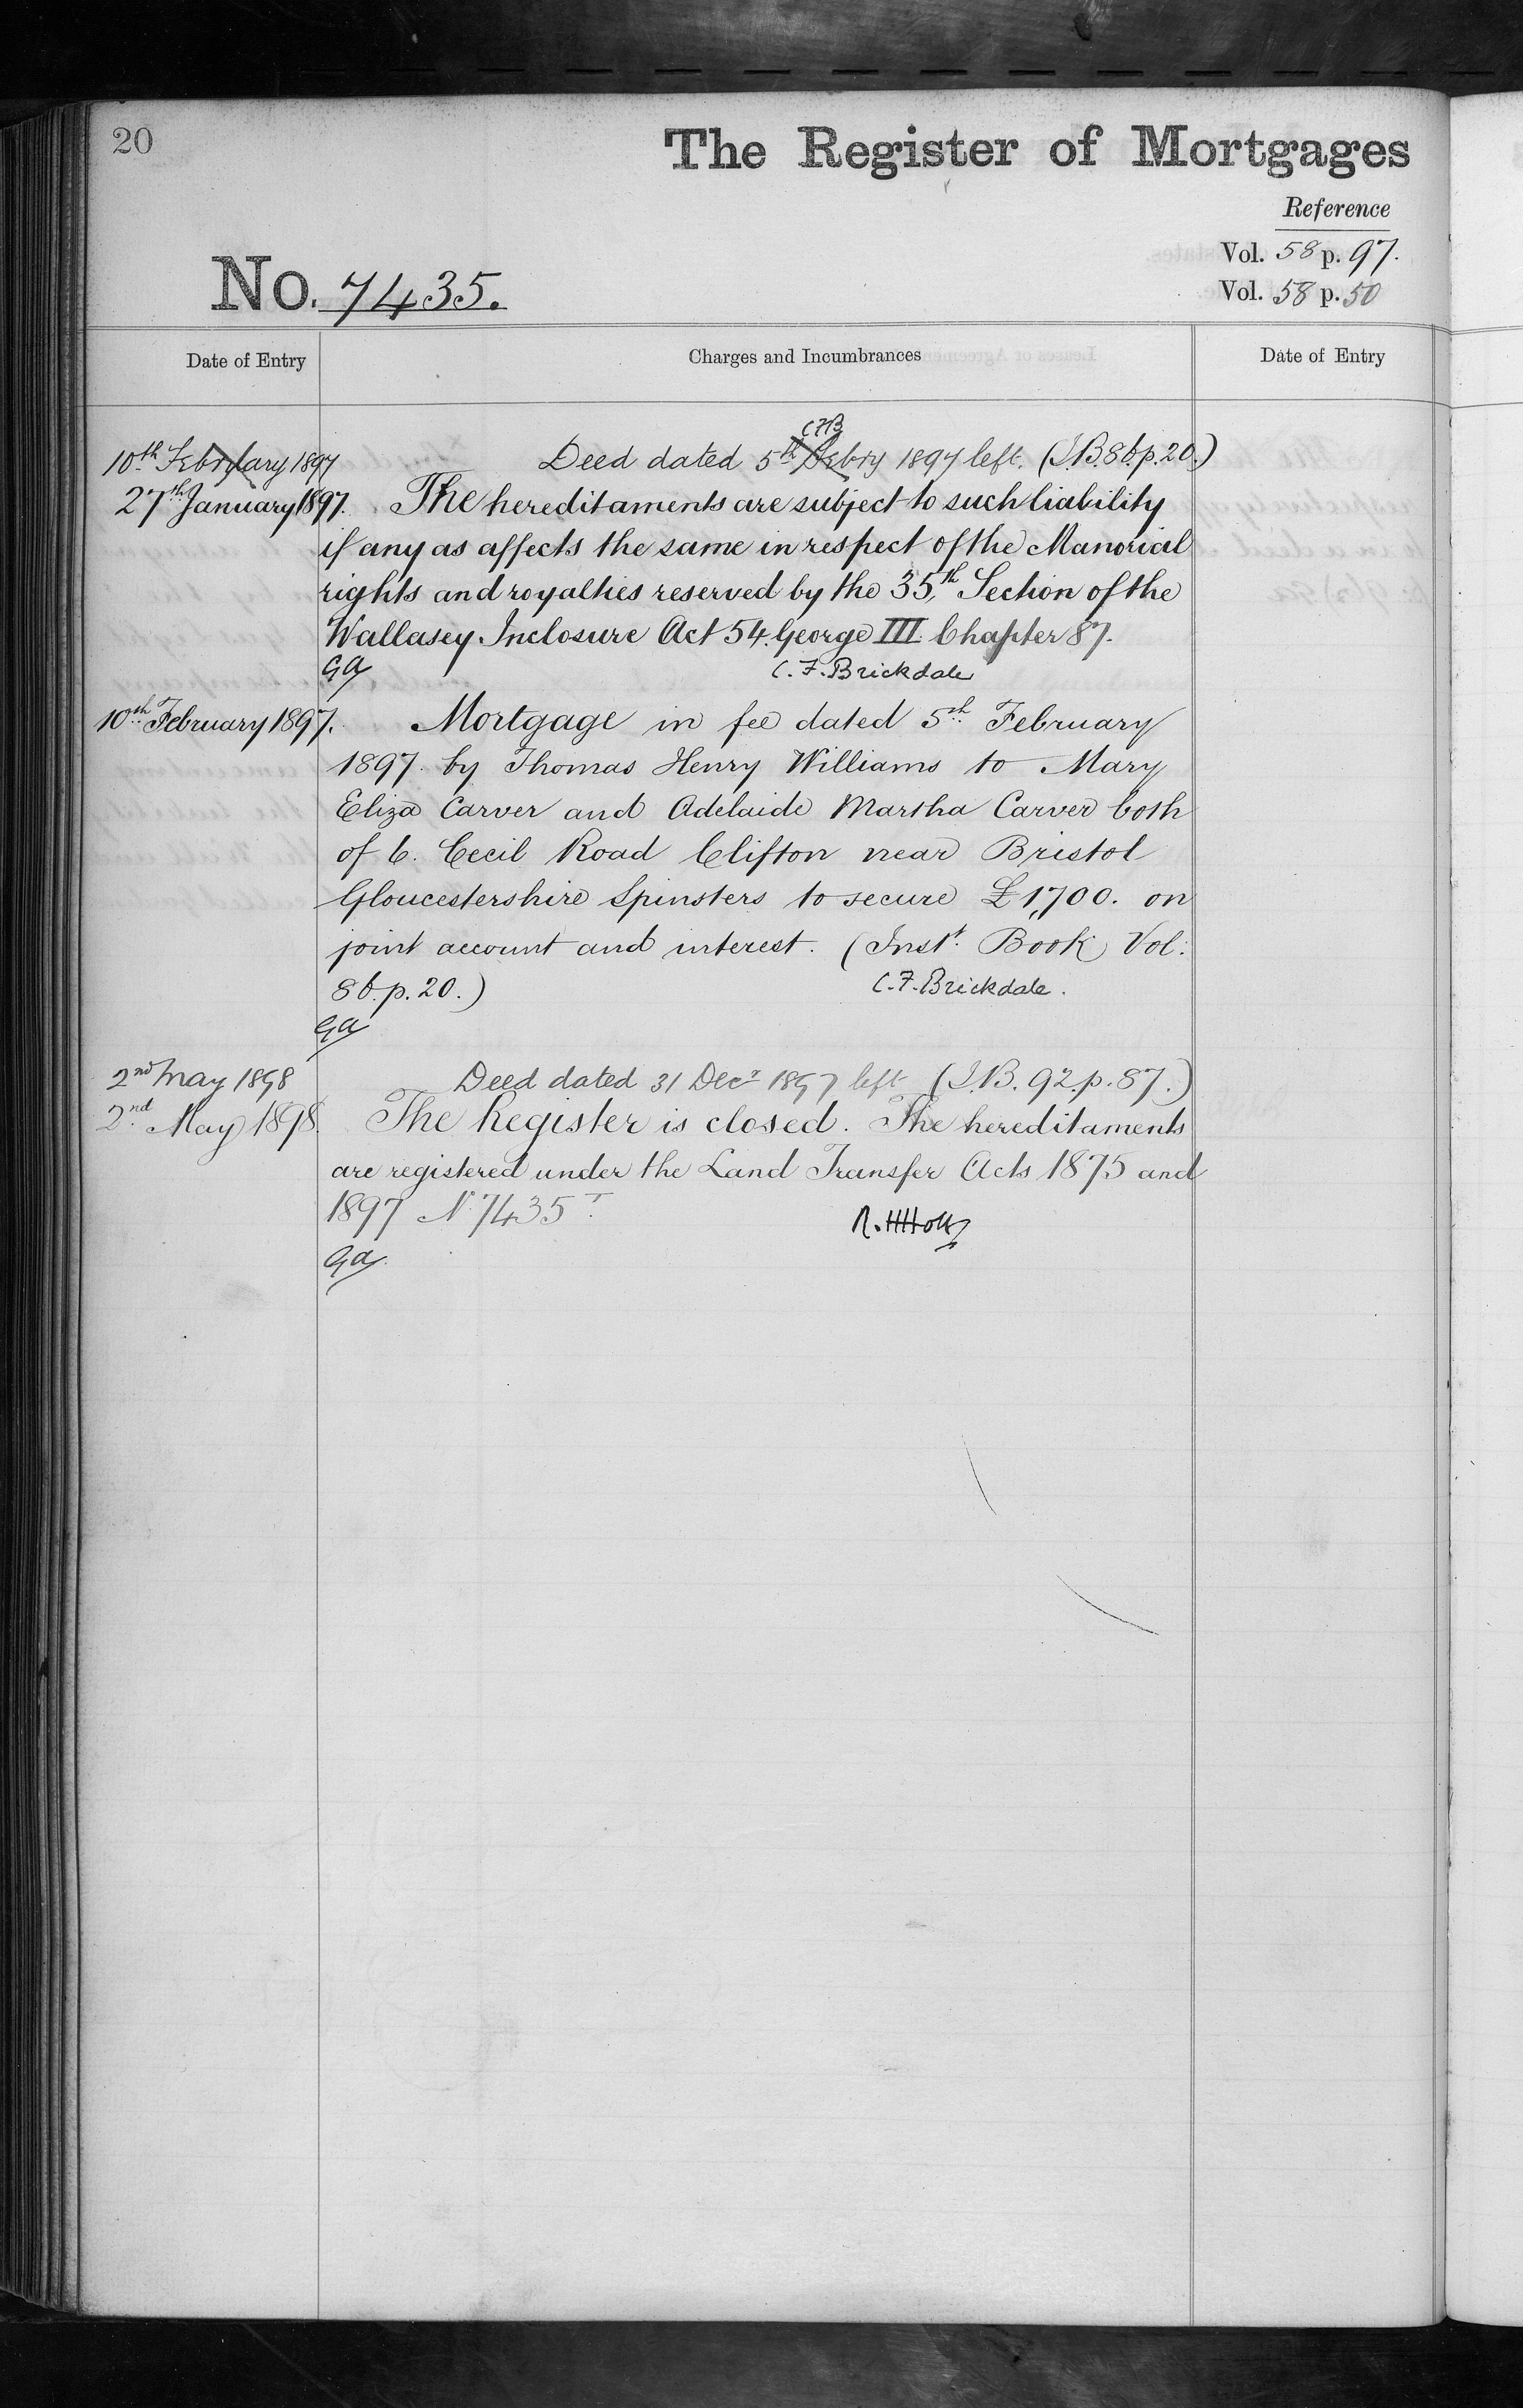 20
The Register of Mortgages
Reference
Vol. 58 p. 97.
Vol. 58 p. 50
No. 7435.
Date of Entry
Charges and Incumbrances
Date of Entry
CFB
10th February 1897 Deed dated 5th Febry 1897 left. (I.B. 86. p. 20.)
27th January 1897. The hereditaments are subject to such liability
if any as affects the same in respect of the Manorial
rights and royalties reserved by the 35th Section of the
Wallasey Inclosure Act 54. George III. Chapter 87.
GA C. F. Brickdale
10th February 1897. Mortgage in fee dated 5th February
1897. by Thomas Henry Williams to Mary
Eliza Carver and Adelaide Martha Carver both
of 6. Cecil Road Clifton near Bristol
Gloucestershire Spinsters to secure £1,700. on
joint account and interest. (Inst. Book Vol:
86. p. 20.) C. F. Brickdale.
GA
2nd May 1898 Deed dated 31 Decr 1897 left (I.B. 92. p. 87.)
2nd May 1898. The Register is closed. The hereditaments
are registered under the Land Transfer Acts 1875 and
1897 No. 7435T.
GA.